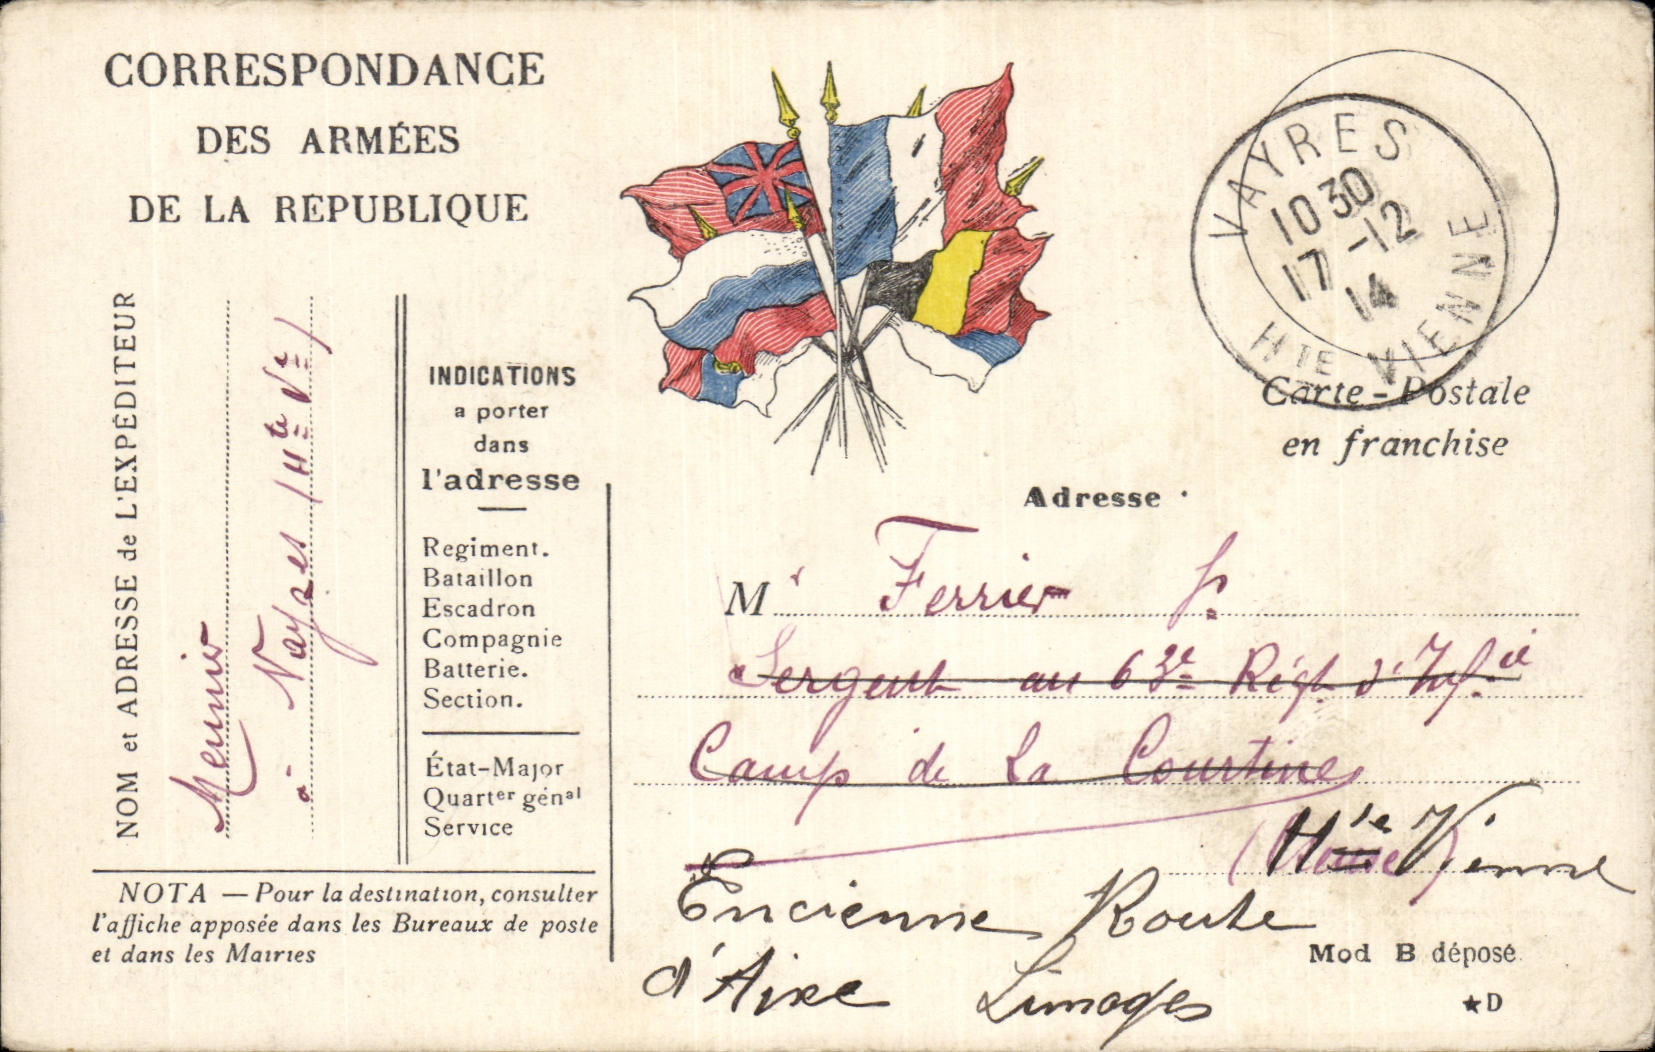 CORRESPONDANCE
DES ARMÉES
DE LA RÉPUBLIQUE
VAYRES
10 30
17 -12
14
HTE VIENNE
Carte-Postale
en franchise
NOM et ADRESSE de L'EXPÉDITEUR
Meunier
à Vayres (Hte Ve)
INDICATIONS
a porter
dans
l'adresse
Regiment.
Bataillon
Escadron
Compagnie
Batterie.
Section.
État-Major
Quartier génal
Service
NOTA — Pour la destination, consulter
l'affiche apposée dans les Bureaux de poste
et dans les Mairies
Adresse
Mr Ferrier P.
Sergent au 63e Régt d'Infie
Camp de La Courtine
(Creuse)
Hte Vienne
Encienne Route
d'Aixe Limoges
Mod B déposé
★D